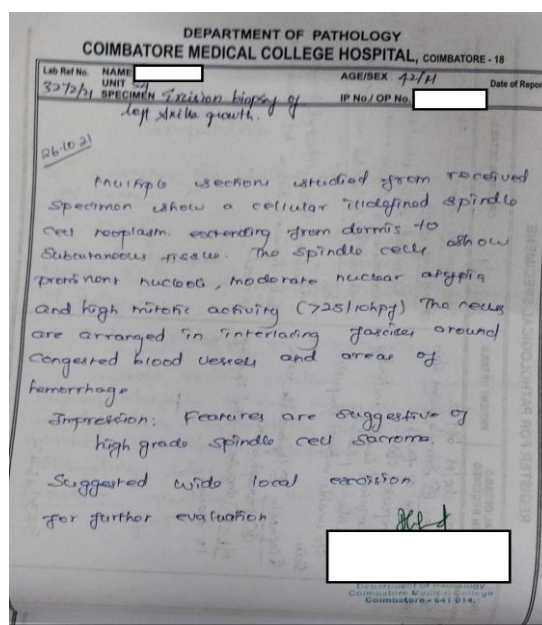 DEPARTMENT OF PATHOLOGY
COIMBATORE MEDICAL COLLEGE HOSPITAL, COIMBATORE - 18
Lab Ref No. NAME AGE/SEX 42/M Date of Repor
3272/21 UNIT IP No./ OP No.
SPECIMEN Incision biopsy of
left growth.
26.10.21
Multiple sections studied from received
Specimen show a cellular illdefined spindle
cell neoplasm. extending from dermis to
Subcutaneous tissue. The spindle cells show
prominent nucleoli, moderate nuclear atypia
and high mitotic activity (>25/10hpf) The cells
are arranged in interlacing fascicles around
congested blood vessels and areas of
hemorrhage
Impression: Features are suggestive of
high grade spindle cell Sacroma.
Suggested wide local excision
for further evaluation
Department of Pathology
Coimbatore Medical College
Coimbatore - 641 014.